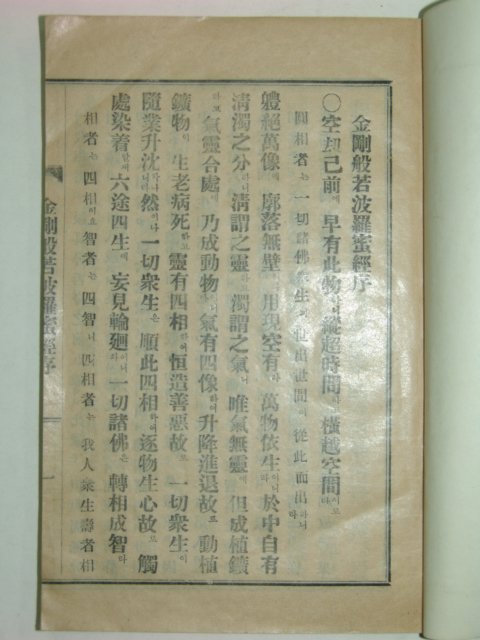 金剛般若波羅蜜經序
〇空刧已前에 早有此物하니 縱超時間하고 橫越空間이로다
圓相者는 一切諸佛衆生이 世出世間이 從此而出하니라
軆絕萬像에 廓落無壁 用現空有 萬物依生이라 於中自有
淸濁之分하니 淸謂之靈 濁謂之氣니 唯氣無靈에 但成植鑛
하고 氣靈合處에 乃成動物 氣有四像하야 升降進退故로 動植
鑛物이 生老病死하고 靈有四相하야 恒造善惡故로 一切衆生이
隨業升沈하나니라 然이나 一切衆生은 順此四相하야 逐物生心故로 觸
處染着할새 六途四生에 妄見輪廻어니와 一切諸佛은 轉相成智라
相者는 四相이요 智者는 四智니 四相者는 我人衆生壽者相
金剛般若波羅蜜經序
一